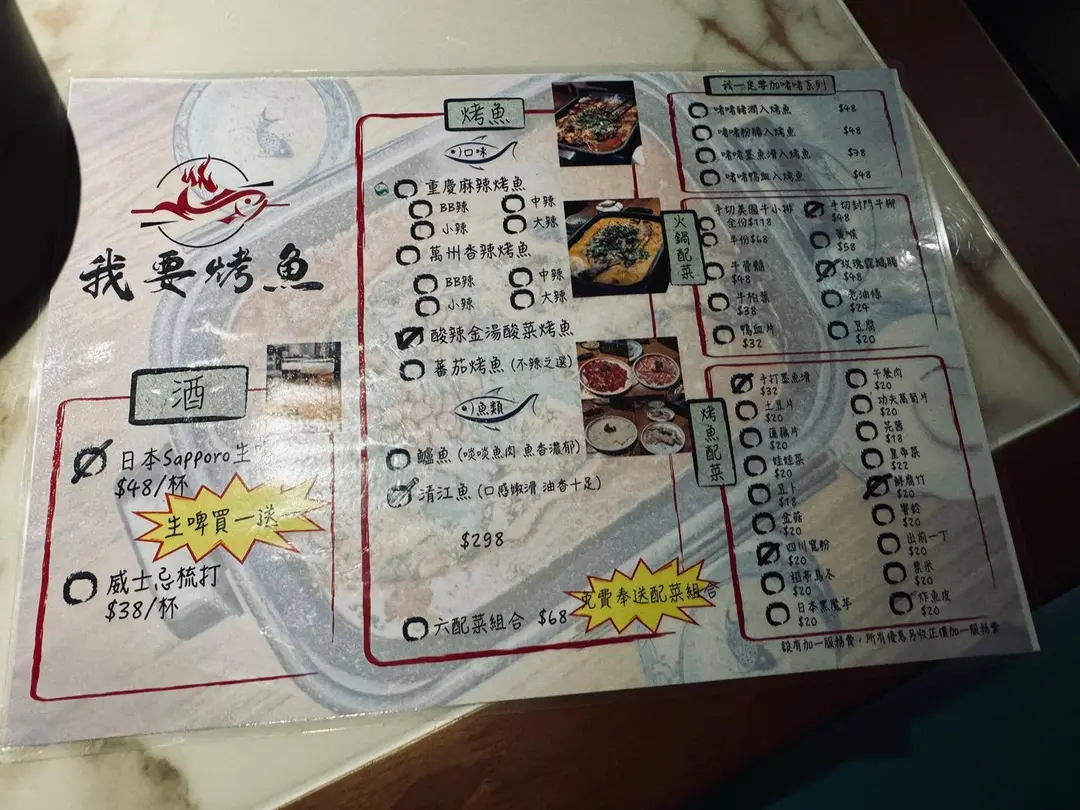 我要烤魚
酒
日本Sapporo生
$48/杯
生啤買一送
威士忌梳打
$38/杯
烤魚
口味
重慶麻辣烤魚
BB辣
中辣
小辣
大辣
萬州香辣烤魚
BB辣
中辣
小辣
大辣
酸辣金湯酸菜烤魚
蕃茄烤魚 (不辣之選)
魚類
鱸魚 (啖啖魚肉 魚香濃郁)
清江魚 (口感嫩滑 油香十足)
$298
六配菜組合 $68
免費奉送配菜組合
我一定要加啫啫系列
啫啫豬潤入烤魚 $48
啫啫粉腸入烤魚 $48
啫啫墨魚滑入烤魚 $78
啫啫鴨血入烤魚 $48
火鍋配菜
手切美國牛小排
全份$118
半份$68
牛骨髓
$48
牛柏葉
$38
鴨血片
$32
手切封門牛柳
$48
黃喉
$58
玫瑰霞鴛腸
$48
老油條
$24
豆腐
$20
烤魚配菜
手打墨魚滑
$32
土豆片
$20
蓮藕片
$20
娃娃菜
$20
豆卜
$18
金菇
$20
四川寬粉
$20
稻亭烏冬
$20
日本黑魔芋
$20
午餐肉
$20
功夫萵筍片
$20
芫茜
$18
皇帝菜
$22
鮮腐竹
$20
響鈴
$20
出前一丁
$20
粟米
$20
炸魚皮
$20
設有加一服務費，所有優惠另收正價加一服務費